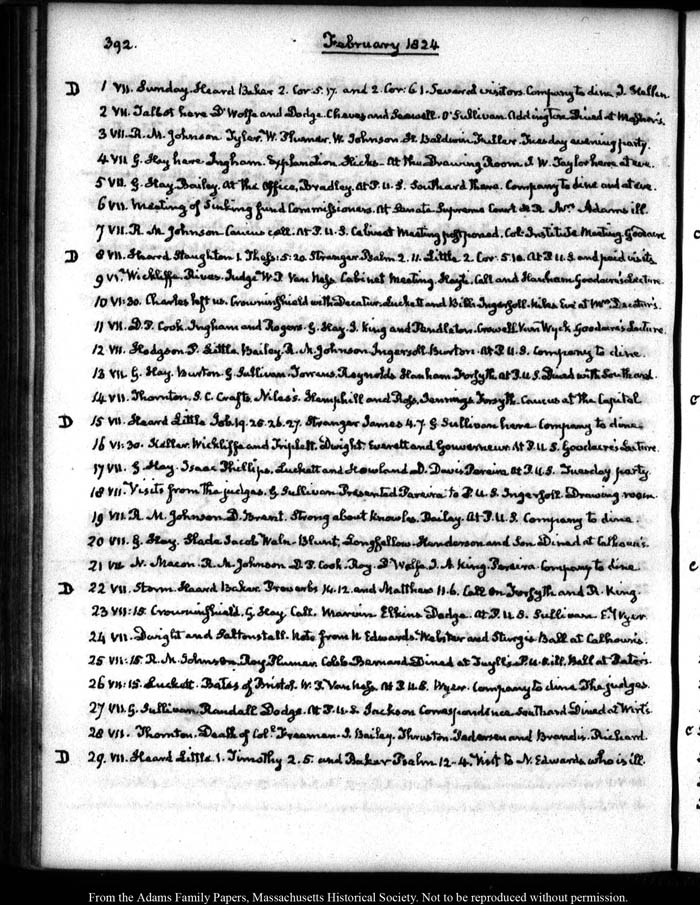 392. February 1824
D 1 VII. Sunday. Heard Baker 2. Cor. 5. 17. and 2. Cor: 6 1. Several visitors. Company to dine J.
2 VII. Talbot here D'Wolfe and Dodge. Cheves and O'Sullivan. Addington. Dined at
3 VII. R. M. Johnson. Tyler. W. Plumer. W. Johnson. Baldwin. Fuller. Tuesday evening party.
4 VII. G. Hay here. Ingham. Explanation Hicks. At the Drawing Room. J. W. Taylor here at eve.
5 VII. G. Hay. Bailey. At the Office, Bradley. At P. U. S. Southard there. Company to dine and at eve.
6 VII. Meeting of Sinking fund Commissioners. At Senate Supreme Court Mrs. Adams ill.
7 VII. R. M. Johnson Caucus call. At P. U. S. Cabinet Meeting postponed. Col: Institute Meeting. Goodacre
D 8 VII. Heard Staughton 1. Thess: 5. 20. Stranger. Psalm. 2. 11. Little 2. Cor. 5. 10. At P. U. S. and paid visits
9 VI. Wickliffe. Rives. Judge. W. P. Van Ness Cabinet Meeting. Hayti. Call and Hanham. Goodacre's Lecture.
10 VI: 30. Charles left us. Crowninshield with Decatur. Luckett and Bill. Ingersoll. Niles. Eve at Mrs Decatur's.
11 VII. D. P. Cook. Ingham and Rogers. G. Hay. J. King and Pendleton. Crowell. Van Wyck. Goodacre's Lecture.
12 VII. Hodgson. P. Little. Bailey. R. M. Johnson. Ingersoll. Burton. At P. U. S. Company to dine.
13 VII. G. Hay. Burton. G. Sullivan. Torrens. Reynolds. Hanham. Forsyth. At P. U. S. Dined with Southard.
14 VII. Thornton. S. C. Crafts. Niles's. Hemphill and Jennings. Forsyth. Caucus at the Capitol
D 15 VII. Heard Little Job. 19. 25. 26. 27. Stranger James 4. 7. G Sullivan here. Company to dine
16 VI: 30. Keller. Wickliffe and Triplett. Dwight. Everett and Gouverneur. At P. U. S. Goodacre's Lecture.
17 VII. G. Hay. Isaac Phillips. Luckett and Howland. D. Davis Pereira at P. U. S. Tuesday party.
18 VII. Visits from the judges. G Sullivan Presented Pereira to P. U. S. Ingersoll. Drawing room.
19 VII. R. M. Johnson. D. Brent. Strong about Knowles. Bailey. At P. U. S. Company to dine.
20 VII. G. Hay. Slade Jacob. Waln. Blunt, Longfellow. Henderson and Son. Dined at Calhoun's.
21 VII. N. Macon. R. M. Johnson. D. P. Cook. Roy. D'Wolfe. J. A. King. Pereira. Company to dine
D 22 VII. Storm. Heard Baker. Proverbs 14. 12. and Matthew 11. 6. Call on Forsyth and R. King.
23 VII: 15. Crowninshield. G. Hay Call. Marvin Elkins Dodge. At P. U. S. Sullivan. E. Wyer.
24 VII. Dwight and Saltonstall. Note from N Edwards. Webster and Sturgis Ball at Calhoun's.
25 VII: 15. R. M. Johnson. Roy. Plumer. Barnard. Dined at P. U. S. ill. Ball at
26 VII: 15. Luckett. Bates of Bristol. W. P. Van Ness At P. U. S. Wyer. Company to dine. The judges.
27 VII. G. Sullivan. Randall Dodge. At P. U. S. Jackson Correspondence. Southard. Dined at Wirt's.
28 VII. Thornton. Death of Col: Freeman. J. Bailey. Thruston. Pedersen and Brandis. Richard
D 29. VII. Heard Little 1. Timothy 2. 5. and Baker Psalm. 12-4. Visit to N. Edwards who is ill.
From the Adams Family Papers, Massachusetts Historical Society. Not to be reproduced without permission.